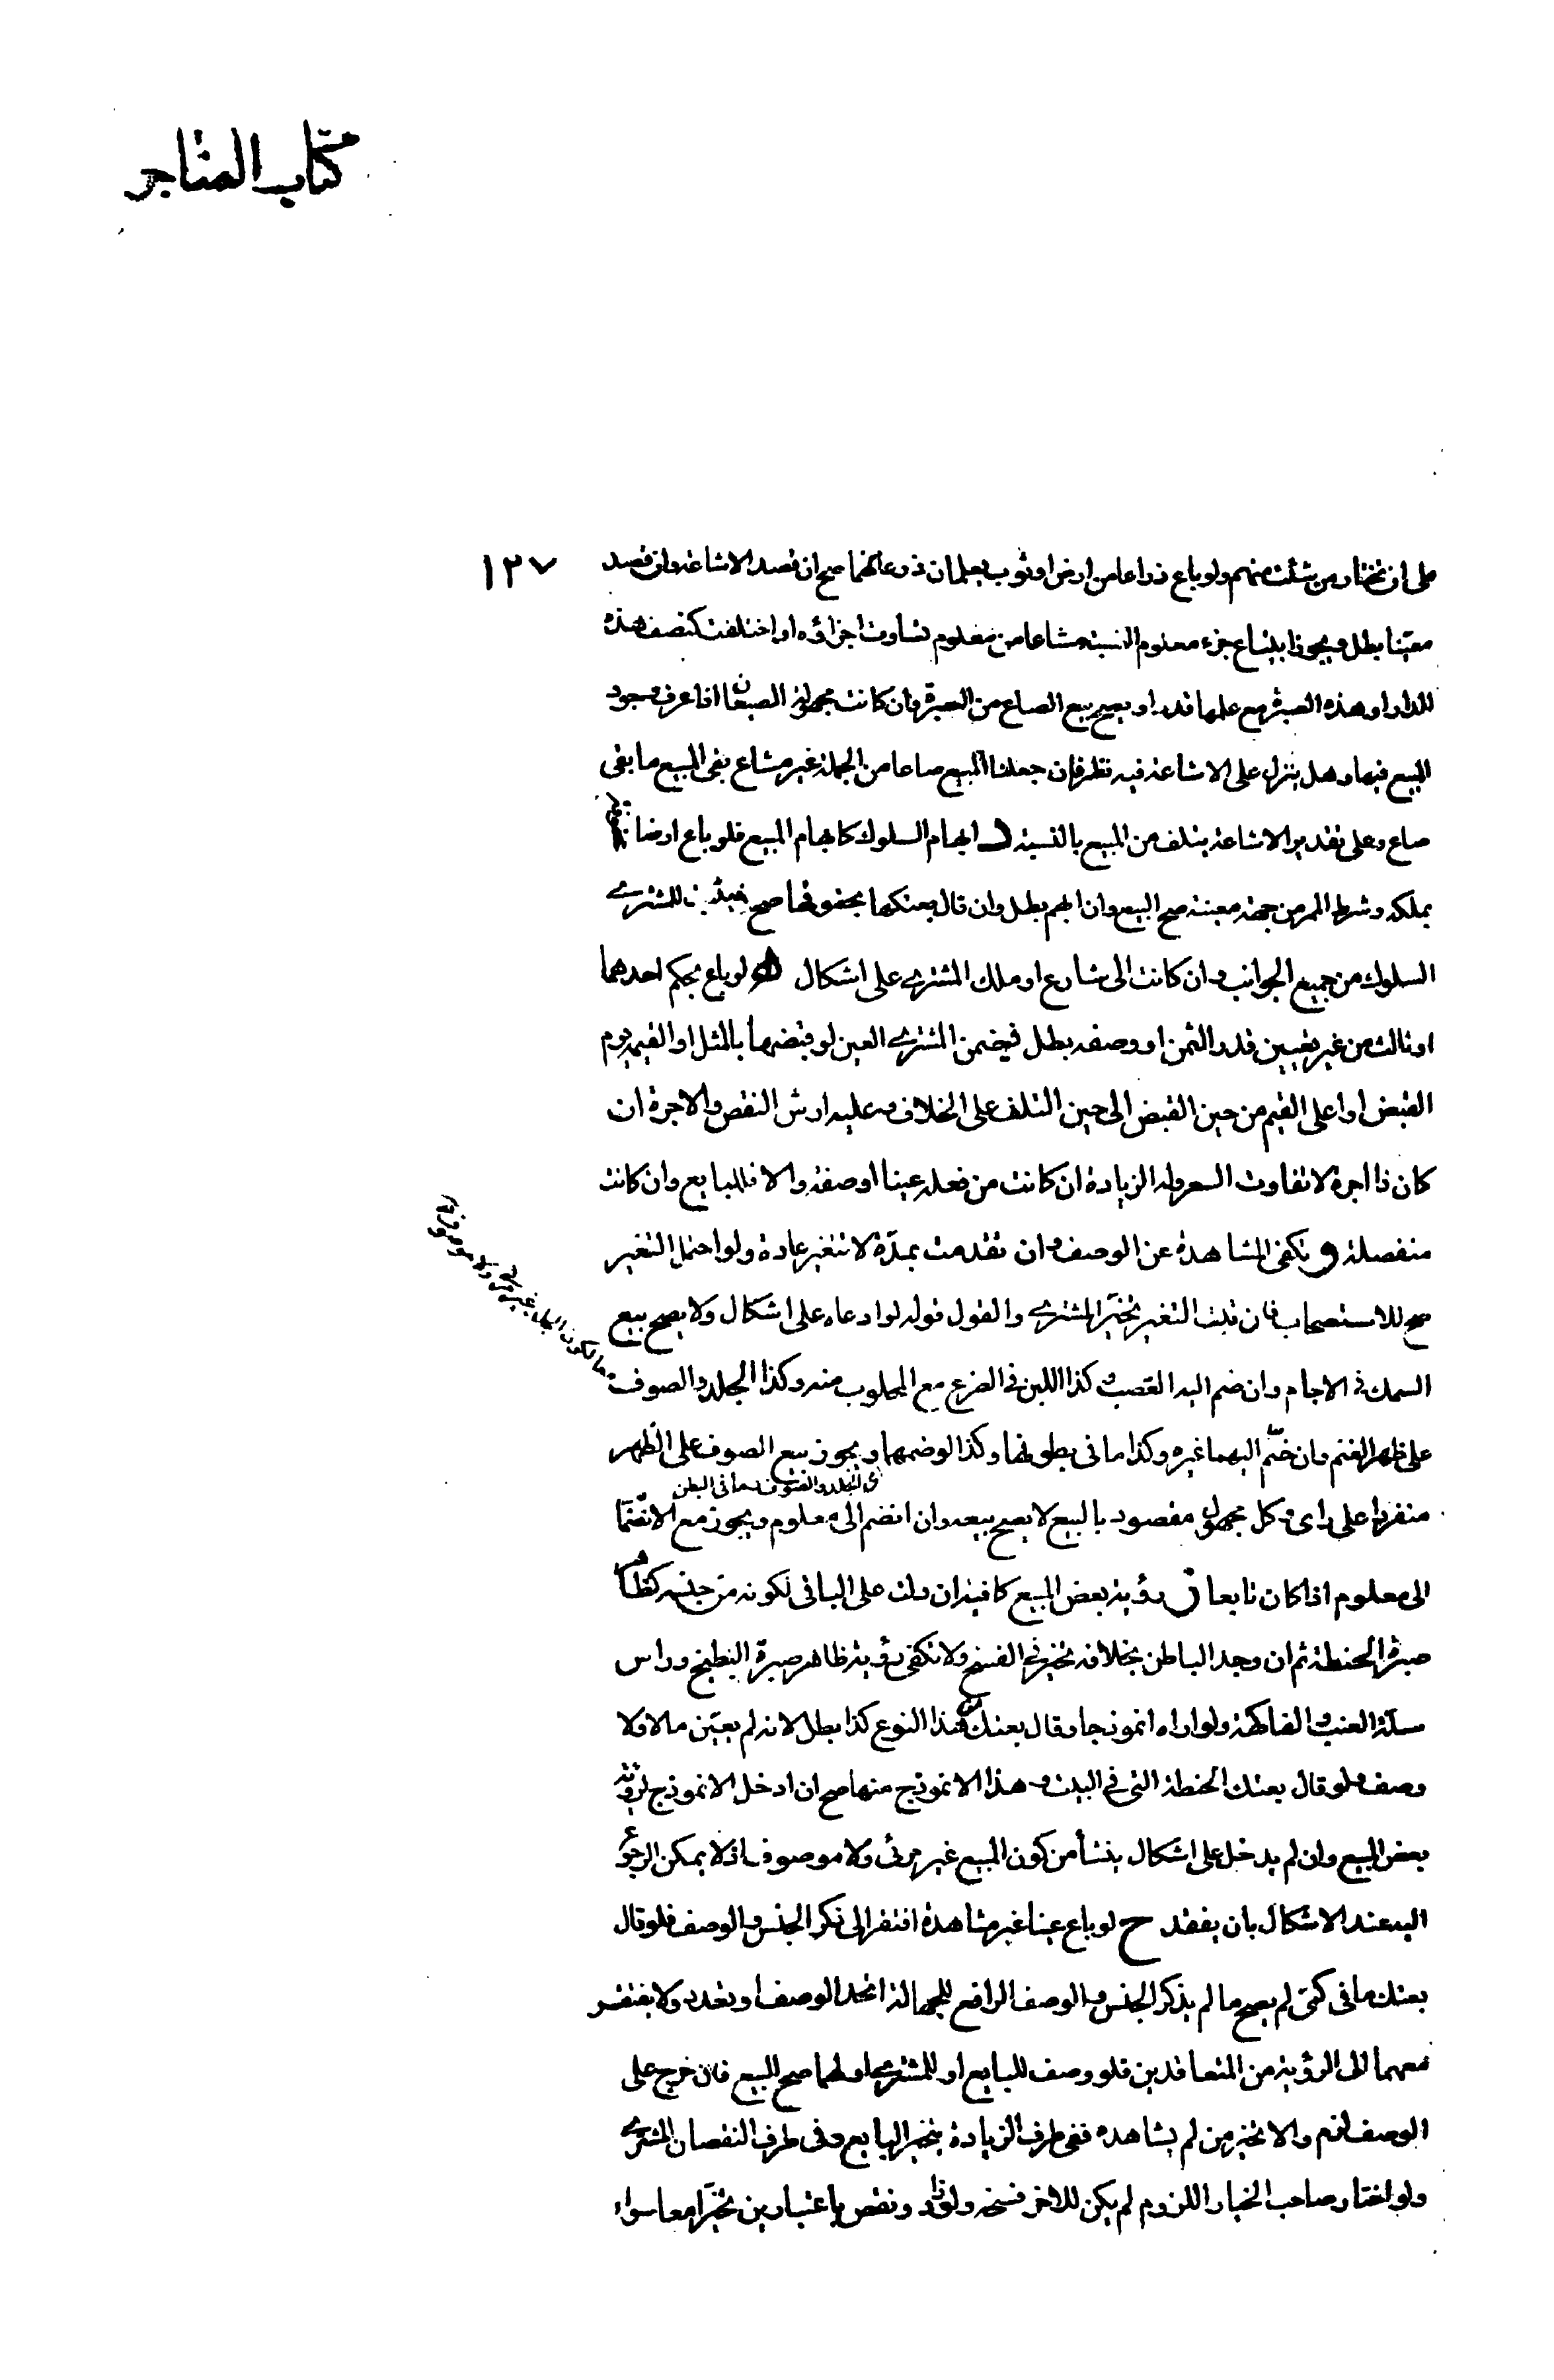 كتاب المتاجر
١٣٧
على ان تختار من شئت منهم ولو باع ذراعا من ارض او ثوب يعلمان ذرعانهما صح ان قصد الاشاعة وان قصد
معينا بطل ويجوز ابتياع جزء معلوم النسبة مشاعا من معلوم تساوت اجزاؤه او اختلفت كنصف هذه
الدار او هذه الصبرة مع علمها قدرا ويصح بيع الصاع من الصبرة وان كانت مجهولة الصيعان اذا عرف وجود
المبيع فيها وهل ينزل على الاشاعة فيه نظر فان جعلنا المبيع صاعا من الجملة غير مشاع بقى المبيع ما بقى
صاع وعلى تقدير الاشاعة يتلف من المبيع بالنسبة د ابهام السلوك كابهام المبيع فلو باع ارضا
بملكه وشرط الممر من جهة معينة صح البيع وان ابهم بطل وان قال بعتكها بحقوقها صح فيثبت للمشترى
السلوك من جميع الجوانب وان كانت الى شارع او ملك المشترى على اشكال ه لو باع بحكم احدهما
او ثالث من غير تعيين قدر الثمن او وصفه بطل فيضمن المشترى العين لو قبضها بالمثل او القيمة يوم
القبض او اعلى القيم من حين القبض الى حين التلف على الخلاف وعليه ارش النقص والاجرة ان
كان ذا اجرة لا تفاوت السعر وله الزيادة ان كانت من فعله عينا او صفة والا فللبايع وان كانت
منفصلة و تكفى المشاهدة عن الوصف وان تقدمت بمدة لا تتغير عادة ولو احتمل التغير
صح للاستصحاب فان ثبت التغير تخير المشترى والقول قوله لو ادعاه على اشكال ولا يصح بيع
السمك فى الاجام وان ضم اليه القصب وكذا اللبن فى الضرع مع المحلوب منه وكذا الجلد والصوف
على ظهر الغنم وان ضم اليهما غيره وكذا ما فى بطونها وكذا لو ضمهما ويجوز بيع الصوف على الظهر
اى الجلد والصوف وما فى البطن
منفردا على راى وكل مجهول مقصود بالبيع لا يصح بيعه وان انضم الى معلوم ويجوز مع الانضمام
الى معلوم اذا كان تابعا ز رؤية بعض المبيع كافية ان دلت على الباقى لكونه من جنسه كظاهر
صبرة الحنطة ثم ان وجد الباطن بخلافه تخير فى الفسخ ولا تكفى رؤية ظاهر صبرة البطيخ وراس
سلة العنب والفاكهة ولو اراه انموذجا وقال بعتك من هذا النوع كذا بطل لانه لم يعين مالا ولا
وصف ولو قال بعتك الحنطة التى فى البيت وهذا الانموذج منها صح ان ادخل الانموذج لرؤية
بعض المبيع وان لم يدخل على اشكال ينشأ من كون المبيع غير مرئى ولا موصوف اذ لا يمكن الرجوع
اليه عند الاشكال بان يفقد ح لو باع عينا غير مشاهدة افتقر الى ذكر الجنس والوصف فلو قال
بعتك ما فى كمى لم يصح ما لم يذكر الجنس والوصف الرافع للجهالة اتحد الوصف او تعدد ولا يفتقر
معهما الى الرؤية من المتعاقدين فلو وصف للبايع او للمشترى او لهما صح البيع فان خرج على
الوصف لزم والا تخير من لم يشاهده ففى طرف الزيادة يتخير البايع وفى طرف النقصان المشترى
ولو اختار صاحب الخيار اللزوم لم يكن للاخر فسخه ولو زاد ونقص باعتبارين تخيرا معا سواء